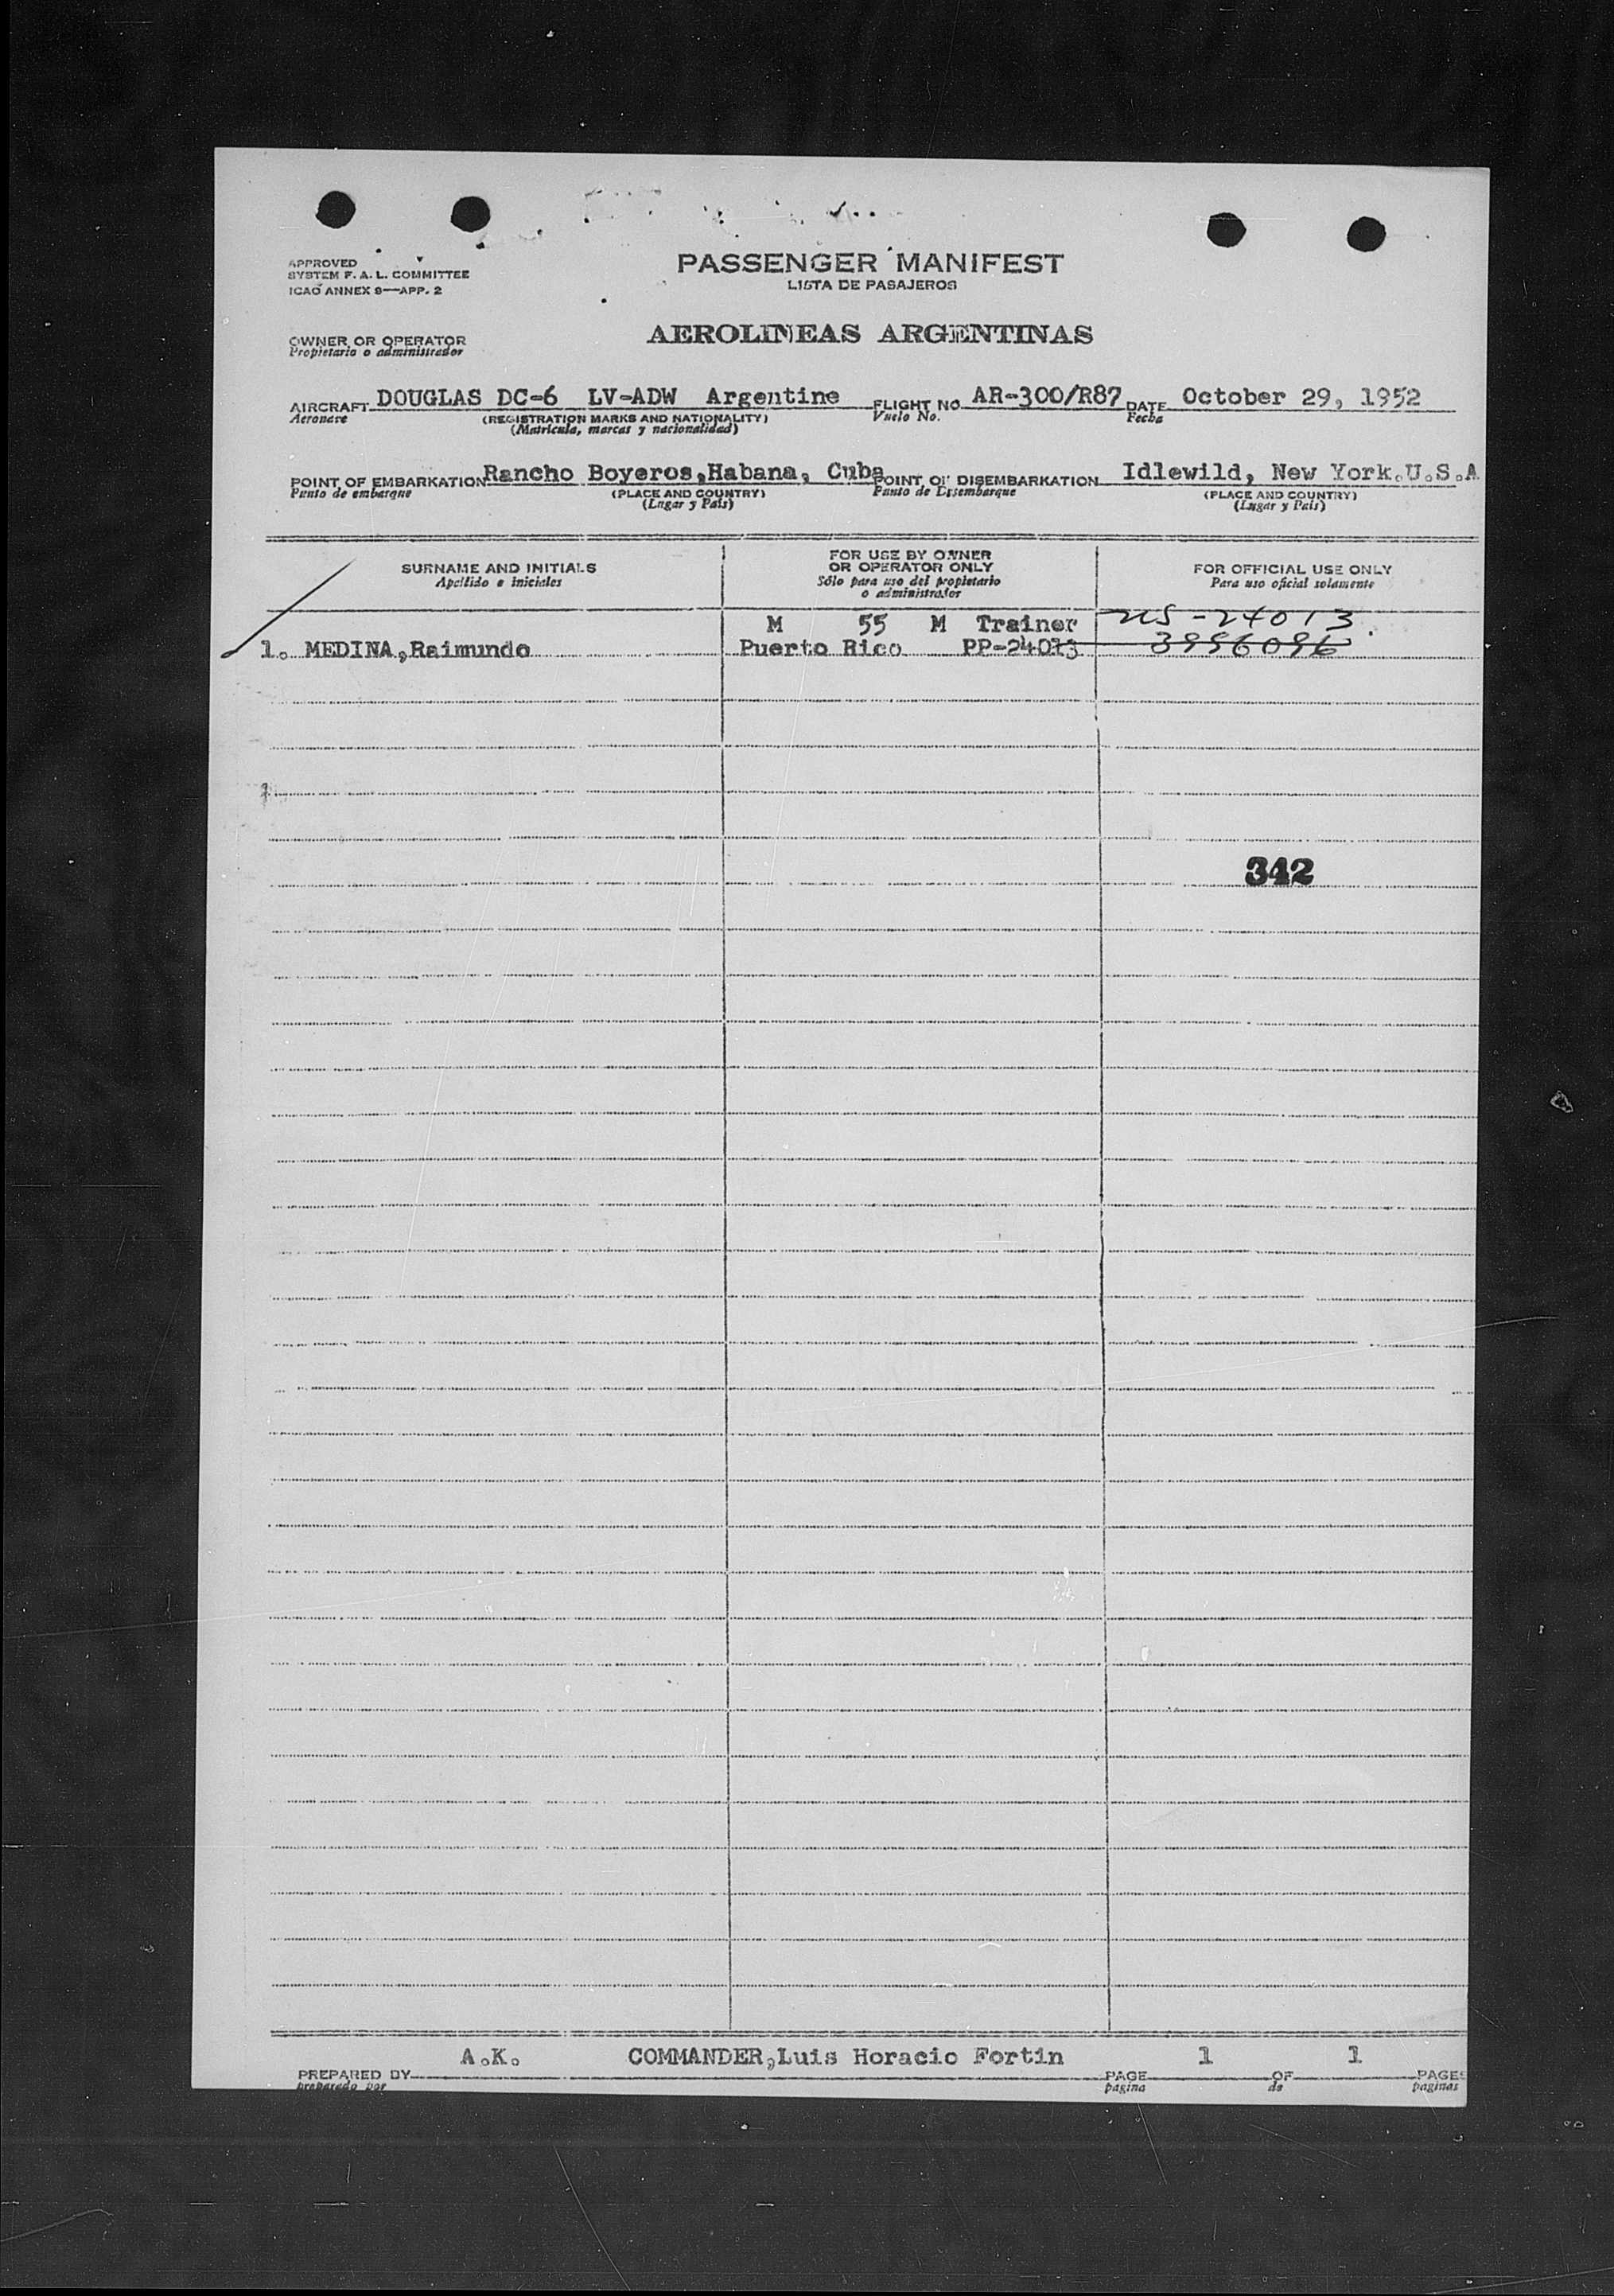 APPROVED
SYSTEM F. A. L. COMMITTEE
ICAO ANNEX 9—APP. 2
PASSENGER MANIFEST
LISTA DE PASAJEROS
OWNER OR OPERATOR
Propietario o administrador
AEROLINEAS ARGENTINAS
AIRCRAFT DOUGLAS DC-6 LV-ADW Argentine FLIGHT NO AR-300/R87 DATE October 29, 1952
Aeronave (REGISTRATION MARKS AND NATIONALITY) Vuelo No. Fecha
(Matrícula, marcas y nacionalidad)
POINT OF EMBARKATION Rancho Boyeros,Habana, Cuba POINT OF DISEMBARKATION Idlewild, New York.U.S.A
Punto de embarque (PLACE AND COUNTRY) Punto de Desembarque (PLACE AND COUNTRY)
(Lugar y País) (Lugar y País)
SURNAME AND INITIALS
Apellido e iniciales
FOR USE BY OWNER
OR OPERATOR ONLY
Sólo para uso del propietario
o administrador
FOR OFFICIAL USE ONLY
Para uso oficial solamente
M 55 M Trainer US-24013
1. MEDINA,Raimundo Puerto Rico PP-24013 3996096
342
A.K. COMMANDER,Luis Horacio Fortin 1 1
PREPARED BY PAGE OF PAGES
preparado por pagina de paginas